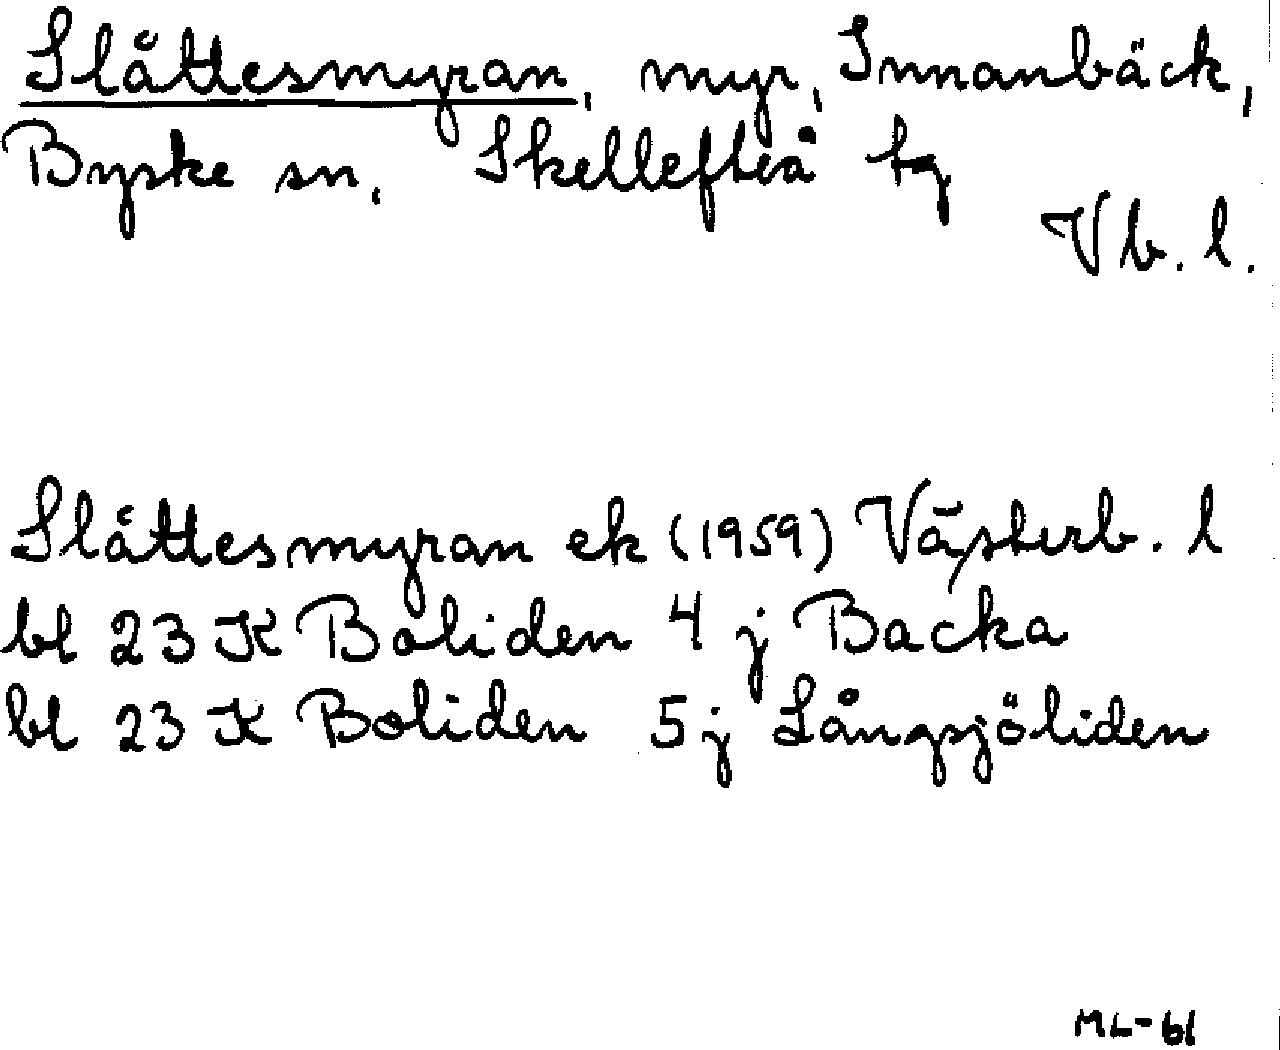 Slåttesmyran, myr, Innanbäck,
Byske sn, Skellefteå tg
Vb. l.
Slåttesmyran ek (1959) Västerb. l
bl 23 K Boliden 4 j Backa
bl 23 K Boliden 5 j Långsjöliden
ML-61